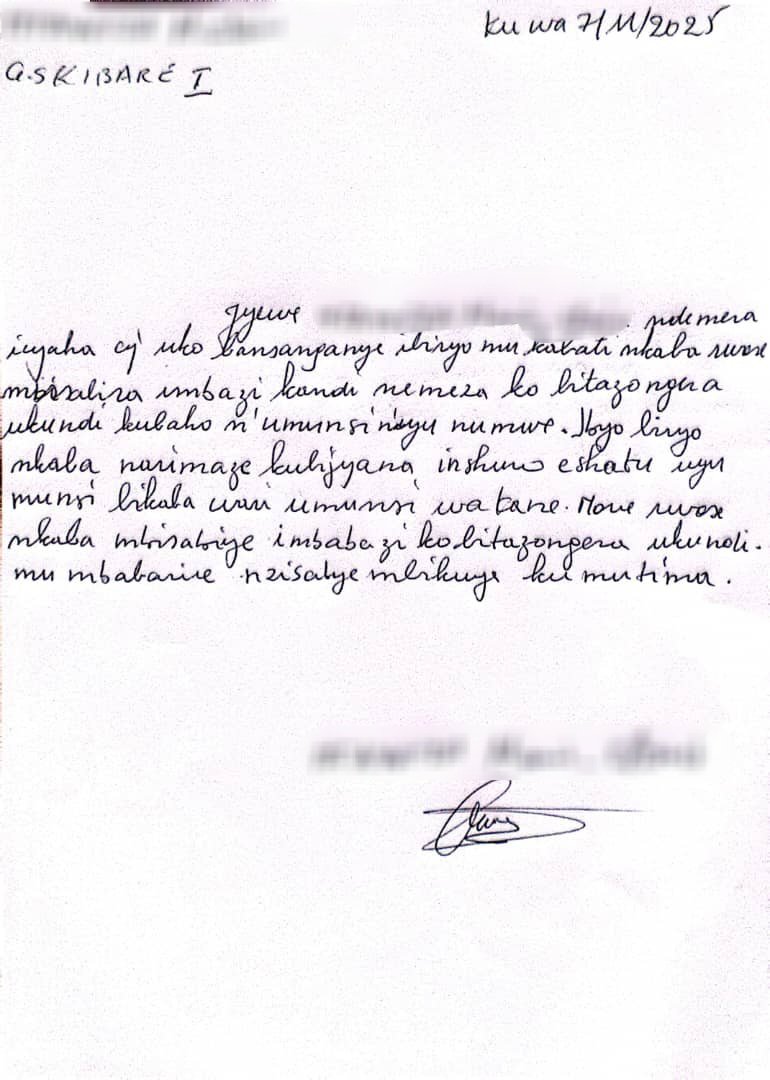 Ku wa 7/11/2025
G.S KIBARE I
Jyewe ndemera
icyaha cy' uko bansanganye ibiryo mu kabati nkaba rwose
mbisabira imbazi kandi nemeza ko bitazongera
ukundi kubaho n'umunsi n'uyu numwe. Ibyo biryo
nkaba narimaze kubijyana inshuro eshatu uyu
munsi bikaba wari umunsi wa kane. None rwose
nkaba mbisabiye imbabazi ko bitazongera ukundi.
mu mbabarire nzisabye mbikuye ku mutima.